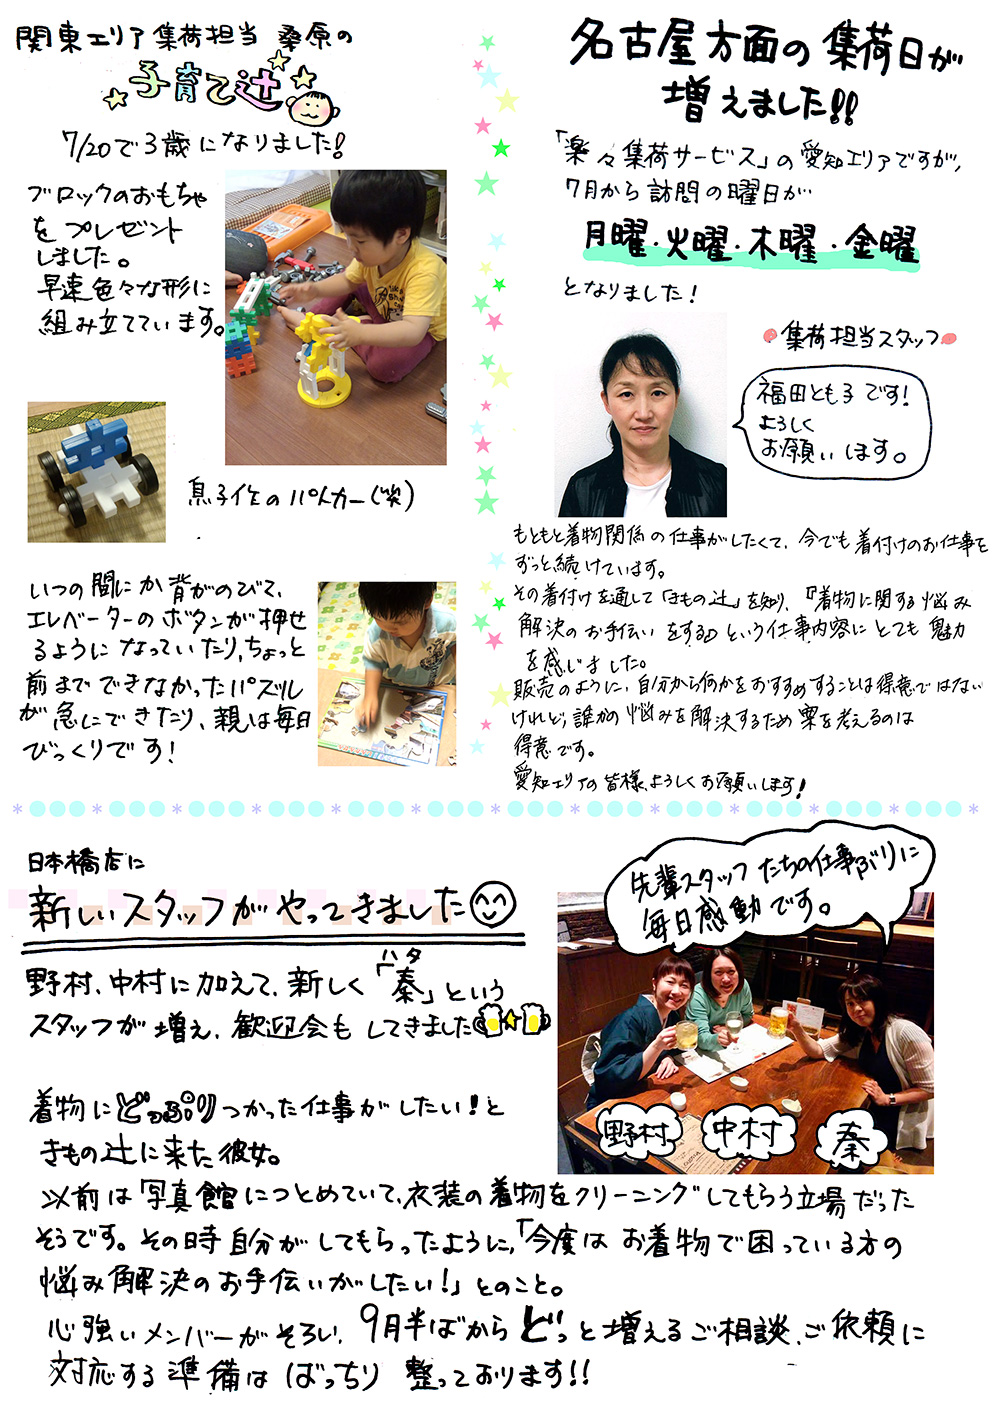 関東エリア集荷担当 桑原の
子育て辻
7/20で3歳になりました!
ブロックのおもちゃ
をプレゼント
しました。
早速色々な形に
組み立てています。
息子作のパトカー(笑)
いつの間にか背がのびて、
エレベーターのボタンが押せ
るようになっていたり、ちょっと
前までできなかったパズル
が急にできたり、親は毎日
びっくりです!
名古屋方面の集荷日が
増えました!!
「楽々集荷サービス」の愛知エリアですが、
7月から訪問の曜日が
月曜・火曜・木曜・金曜
となりました!
集荷担当スタッフ
福田とも子です!
よろしく
お願いします。
もともと着物関係の仕事がしたくて、今でも着付けのお仕事を
ずっと続けています。
その着付けを通して「きもの辻」を知り、『着物に関する悩み
解決のお手伝いをする』という仕事内容にとても魅力
を感じました。
販売のように、自分から何かをおすすめすることは得意ではない
けれど、誰かの悩みを解決するため案を考えるのは
得意です。
愛知エリアの皆様、よろしくお願いします!
日本橋店に
新しいスタッフがやってきました
野村、中村に加えて、新しく「秦」という
ハタ
スタッフが増え、歓迎会もしてきました
着物にどっぷりつかった仕事がしたい!と
きもの辻に来た彼女。
以前は写真館につとめていて、衣装の着物をクリーニングしてもらう立場だった
そうです。その時自分がしてもらったように、「今度はお着物で困っている方の
悩み解決のお手伝いがしたい!」とのこと。
心強いメンバーがそろい、9月半ばからどっと増えるご相談、ご依頼に
対応する準備はばっちり整っております!!
先輩スタッフたちの仕事ぶりに
毎日感動です。
野村
中村
秦